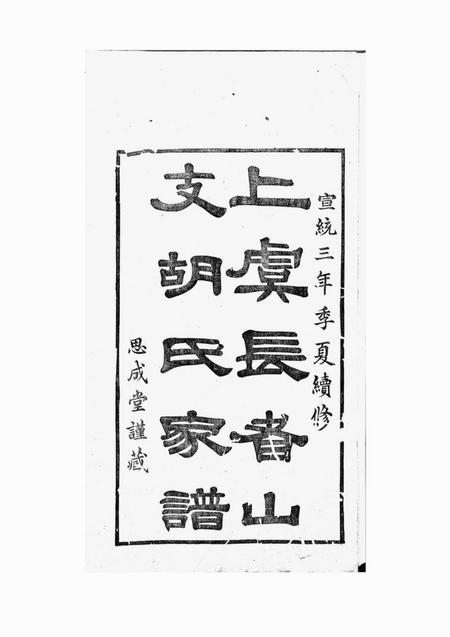 宣統三年季夏續修
上虞長者山
支胡氏家譜
思成堂謹藏